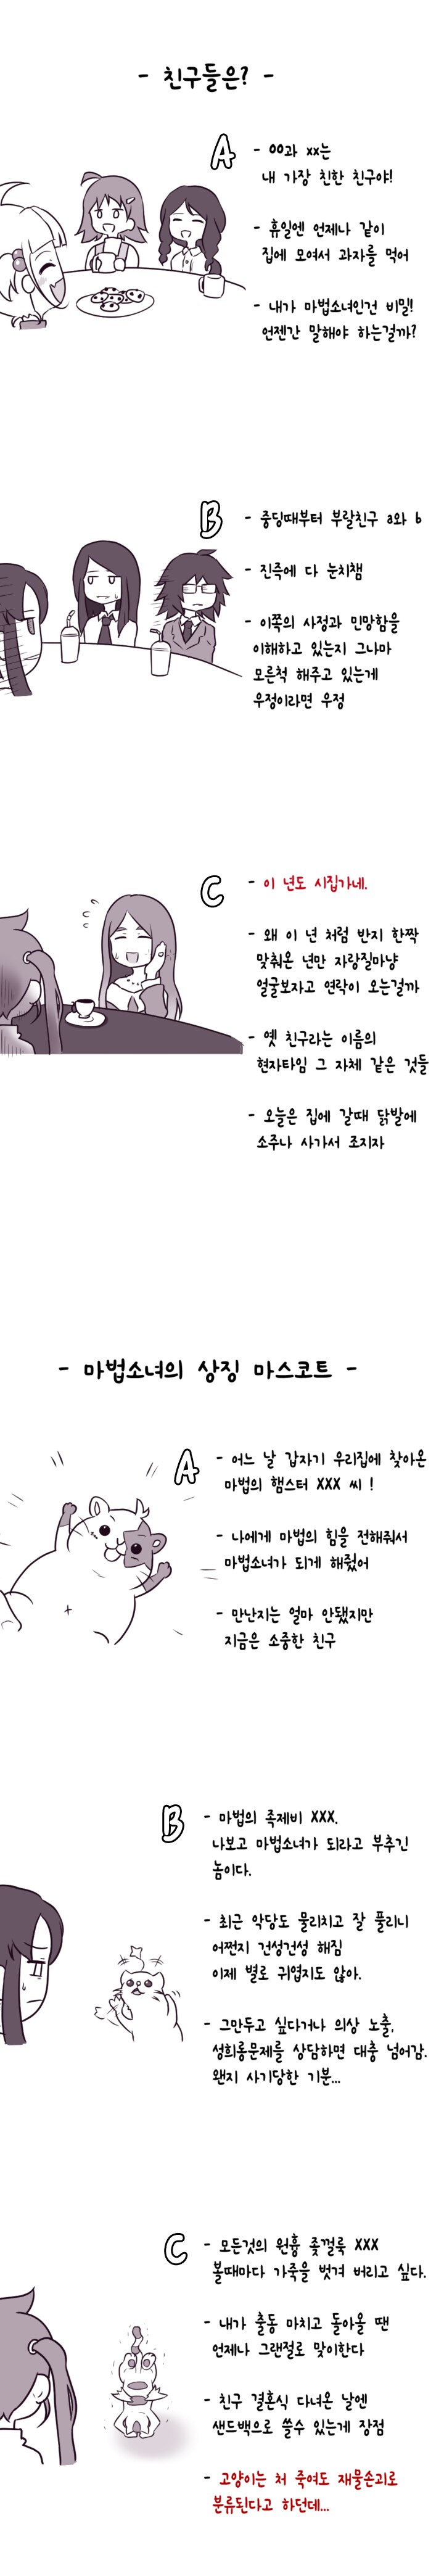 - 친구들은? -
A
- 00과 xx는
내 가장 친한 친구야!
- 휴일엔 언제나 같이
집에 모여서 과자를 먹어
- 내가 마법소녀인건 비밀!
언젠간 말해야 하는걸까?
B
- 중딩때부터 부랄친구 a와 b
- 진즉에 다 눈치챔
- 이쪽의 사정과 민망함을
이해하고 있는지 그나마
모른척 해주고 있는게
우정이라면 우정
C
- 이 년도 시집가네.
- 왜 이 년 처럼 반지 한짝
맞춰온 년만 자랑질마냥
얼굴보자고 연락이 오는걸까
- 옛 친구라는 이름의
현자타임 그 자체 같은 것들
- 오늘은 집에 갈때 닭발에
소주나 사가서 조지자
- 마법소녀의 상징 마스코트 -
A
- 어느 날 갑자기 우리집에 찾아온
마법의 햄스터 XXX 씨 !
- 나에게 마법의 힘을 전해줘서
마법소녀가 되게 해줬어
- 만난지는 얼마 안됐지만
지금은 소중한 친구
B
- 마법의 족제비 XXX.
나보고 마법소녀가 되라고 부추긴
놈이다.
- 최근 악당도 물리치고 잘 풀리니
어쩐지 건성건성 해짐
이제 별로 귀엽지도 않아.
- 그만두고 싶다거나 의상 노출,
성희롱문제를 상담하면 대충 넘어감.
왠지 사기당한 기분...
C
- 모든것의 원흉 좆껄룩 XXX
볼때마다 가죽을 벗겨 버리고 싶다.
- 내가 출동 마치고 돌아올 땐
언제나 그랜절로 맞이한다
- 친구 결혼식 다녀온 날엔
샌드백으로 쓸수 있는게 장점
- 고양이는 처 죽여도 재물손괴로
분류된다고 하던데...